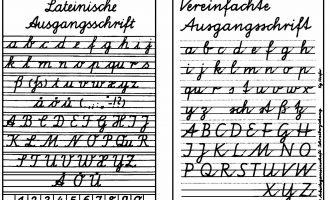 Lateinische
Ausgangsschrift
a b c d e f g h i j
k l m n o p q u r s
ß (ß) t u v w x y z
ä ö ü (.,:;„-!?)
A B C D E F G H I J
K L M N O P Qu R
S T U V W X Y Z
Ä Ö Ü
1 2 3 4 5 6 7 8 9 0
Vereinfachte
Ausgangsschrift
a b c d e f g h
i j k l m n o p qu
r s t u v w x
y z sch st ß tz
A B C D E F G H I
J K L M N O
P Q R S T U V W
X Y Z